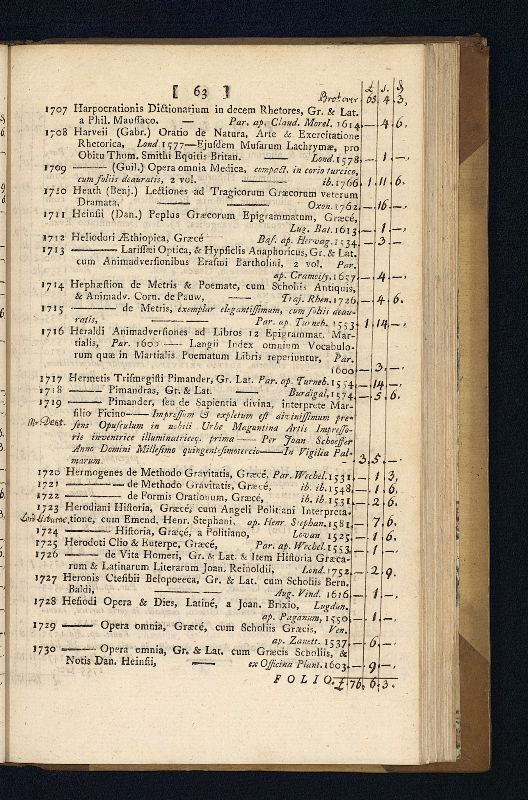 [ 63 ]
£ s. d
Brot over 65. 4. 3,
1707 Harpocrationis Dictionarium in decem Rhetores, Gr. & Lat.
a Phil. Maussaco. — Par. ap. Claud. Morel. 1614 — 4. 6.
1708 Harveii (Gabr.) Oratio de Natura, Arte & Exercitatione
Rhetorica, Lond 1577—Ejusdem Musarum Lachrymæ, pro
Obitu Thom. Smithi Equitis Britan. — Lond. 1578 — 1. —
1709 —— (Guil.) Opera omnia Medica, compact. in corio turcico,
cum foliis deauratis, 2 vol. ib. 1766 1. 11. 6.
1710 Heath (Benj.) Lectiones ad Tragicorum Græcorum veterum
Dramata, —— —— Oxon. 1762. — 16. —
1711 Heinsii (Dan.) Peplus Græcorum Epigrammatum, Græcé,
Lug. Bat. 1613 — 1. —
1712 Heliodori Æthiopica, Græcé —— Bas. ap. Hervag. 1534. — 3. —
1713 —— Larissæi Optica, & Hypsiclis Anaphoricus, Gr. & Lat.
cum Animadversionibus Erasmi Bartholini, 2 vol. Par.
ap. Cramoisy, 1657 — 4. —
1714 Hephæstion de Metris & Poemate, cum Scholiis Antiquis,
& Animadv. Corn. de Pauw, —— Traj. Rhen. 1726 — 4. 6.
1715 —— de Metris, exemplar elegantissimum, cum foliis deau-
ratis, —— Par. ap. Turneb. 1553 1. 14. —
1716 Heraldi Animadversiones ad Libros 12 Epigrammat. Mar-
tialis, Par. 1600 — Langii Index omnium Vocabulo-
rum quæ in Martialis Poematum Libris reperiuntur, Par.
1600 — 3. —
1717 Hermetis Trismegisti Pimander, Gr. Lat. Par. ap. Turneb. 1554 — 14. —
1718 —— Pimandras, Gr. & Lat. —— Burdigal, 1574. — 5. 6.
1719 —— Pimander, seu de Sapientia divina, interprete Mar-
silio Ficino—Impressum & expletum est divinissimum pre-
sens Opusculum in nobili Urbe Maguntina Artis Impresso-
rie inventrice illuminatriceq. prima — Per Joan Schoeffer
Anno Domini Millesimo quingentesimotercio—In Vigilia Pal-
marum. 3. 5. —
1720 Hermogenes de Methodo Gravitatis, Græcé, Par. Wechel. 1531 — 1. 3,
1721 —— de Methodo Gravitatis, Græcé, ib. ib. 1548 — 1. 6.
1722 —— de Formis Orationum, Græcé, ib. ib. 1531 — 2. 6.
1723 Herodiani Historia, Græcé, cum Angeli Politiani Interpreta-
tione, cum Emend. Henr. Stephani, ap. Henr. Stephan. 1581, — 7. 6.
1724 —— Historia, Græcé, a Politiano, Lovan 1525. — 1. 6.
1725 Herodoti Clio & Euterpe, Græcé, Par. ap. Wechel. 1553 — 1. —
1726 —— de Vita Homeri, Gr. & Lat. & Item Historia Græca-
rum & Latinarum Literarum Joan. Reinoldii, Lond. 1752. — 2. 9.
1727 Heronis Ctesibii Belopoeeca, Gr. & Lat. cum Scholiis Bern.
Baldi, —— —— Aug. Vind. 1616 — 1. —
1728 Hesiodi Opera & Dies, Latiné, a Joan. Brixio, Lugdun.
ap. Paganum, 1550 — 1. —
1729 —— Opera omnia, Græcé, cum Scholiis Græcis, Ven.
ap. Zanett. 1537 — 6. —
1730 —— Opera omnia, Gr. & Lat. cum Græcis Scholiis, &
Notis Dan. Heinsii, —— ex Officina Plant. 1603. — 9. —
FOLIO. £76. 6. 3.